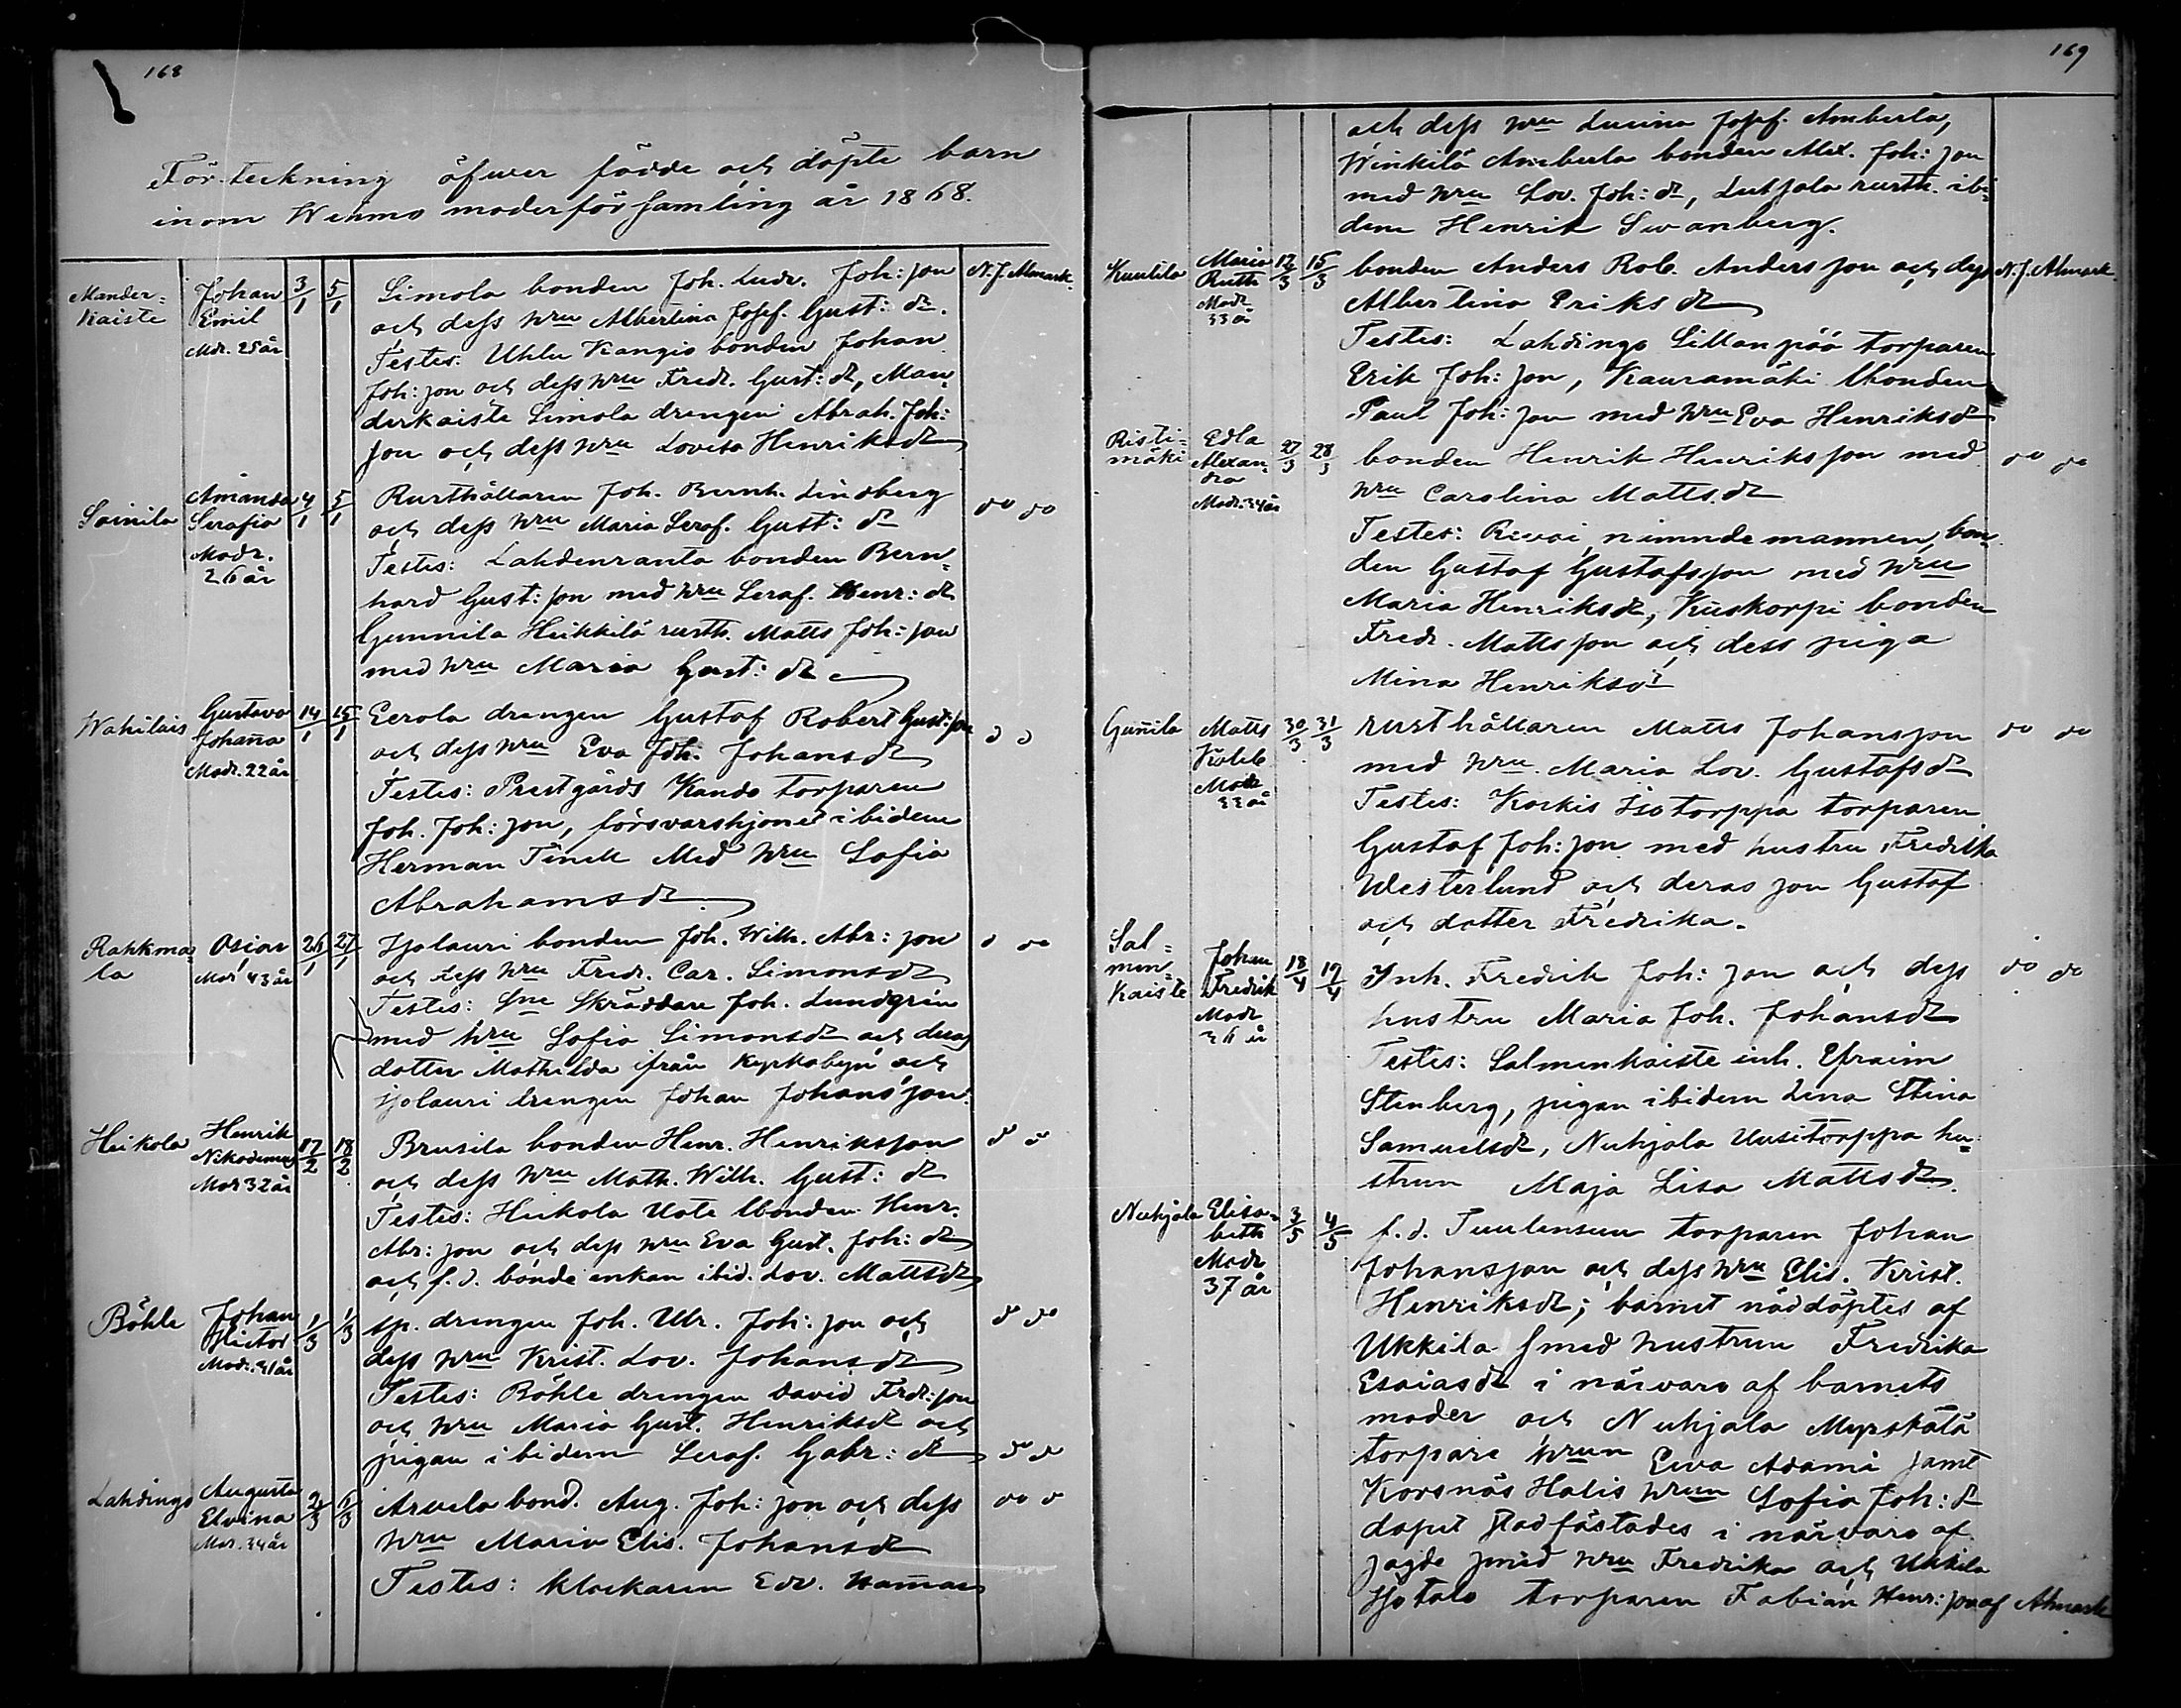 168
Förteckning öfwer födde och döpte barn
inom Wehmo moderförsamling år 1868.
Mander=
kaiste
Johan
Emil
Modr. 25 år
3/1
5/1
Simola bonden Joh. Ludv. Joh: son
och dess hru Albertina Josef. Gust: dr.
Testes: Uhlu Kangis bonden Johan
Joh: son och dess hru Fredr. Gust: dr, Man=
derkaiste Simola drengen Abrah. Joh:
son och dess hru Lovisa Henriksdr
N. J. Almark.
Soinila
Amanda
Serafia
Modr.
26 år
4/1
5/1
Rusthållaren Joh. Bernh. Lindberg
och dess hru Maria Seraf. Gust: dr
Testes: Lahdenranta bonden Bern=
hard Gust: son med hru Seraf. Henr: dr
Gunnila Heikkilä rusth. Matts Joh: son
med hru Maria Gust: dr
do do
Wahilais
Gustava
Johana
Modr. 22 år
14/1
15/1
Eerola drengen Gustaf Robert Gust: son
och dess hru Eva Joh. Johansdr
Testes: Prestgårds Kando torparen
Joh. Joh: son, försvarshjonet ibidem
Herman Finell Med hru Sofia
Abrahamsdr
d d
Rahkma=
la
Osiar
Mod 43 år
26/1
27/1
Isolauri bonden Joh. Wilh. Abr: son
och dess hru Fredr. Car. Simonsdr
Testes: Sne Skräddare Joh. Lundgrén
med hru Sofia Simonsdr och deras
dotter Mathilda ifrån Kyrkobyn och
Isolauri drengen Johan Johansson.
d do
Heikola
Henrik
Nikodemus
Mod 32 år
17/2
18/2
Brusila bonden Henr. Henriksson
och dess hru Math. Wilh. Gust: dr
Testes: Heikola Uote bonden Henr.
Abr: son och dess hru Eva Gust. Joh: dr
och f. d. bonde enkan ibid. Lov. Mattsdr
d d
Böhle
Johan
Hictor
Modr. 31 år
1/3
1/3
sp. drengen Joh. Ulr. Joh: son och
dess hru Krist. Lov. Johansdr
Testes: Böhle drengen David Fredr: son
och hru Maria Gust. Henriksdr och
pigan ibidem Seraf. Gabr: dr
d do
do do
Lahdingo
Augusta
Elvina
Mor. 34 år
2/3
6/3
Arvela bond. Aug. Joh: son och dess
hru Maria Elis. Johansdr
Testes: klockaren Edv.
do d
169
och dess hru Lucina Josef. Amberla,
Winkilä Amberla bonden Alex. Joh: son
med hru Lov. Joh: dr, Lutjala rusth. ibi=
dem Henrik Swanberg.
Kuulila
Maria
Ruth
Modr
33 år
12/3
15/3
bonden Anders Rob. Andersson och dess
Albertina Eriksdr
Testes: Lahdingo Sillanpää torparen
Erik Joh: son, Kauramäki bonden
Paul Joh: son med hru Eva Henriksdr
N. J. Almark
Risti=
mäki
Edla
Alexan=
dra
Modr. 34 år
27/3
28/3
bonden Henrik Henriksson med
hru Carolina Mattsdr
Testes: Rivoi nimndemannen, bon=
den Gustaf Gustafsson med hru
Maria Henriksdr, Kuskorpi bonden
Fredr. Mattsson och dess piga
Mina Henriksdr
do do
Guñila
Matts
Modr
33 år
30/3
31/3
rusthållaren Matts Johansson
med hru Maria Lov. Gustafsdr
Testes: Korkis Isotorppa torparen
Gustaf Joh: son med hustru Fredrika
Westerlund och deras son Gustaf
och dotter Fredrika.
do do
Sal=
men=
kaiste
Johan
Fredrik
Modr
36 år
18/4
19/4
Inh. Fredrik Joh: son och dess
hustru Maria Joh. Johansdr
Testes: Salmenkaiste inh. Efraim
Stenberg, pigan ibidem Lena Stina
Samuelsdr, Nuhjala Uusitorppa hu=
strun Maja Lisa Mattsdr.
do do
Nuhjala
Elisa=
beth
Modr
37 år
3/5
4/5
f. d. Tuulensuu torparen Johan
Johansson och dess hru Elis. Krist.
Henriksdr; barnet nöddöptes af
Ukkila smed hustrun Fredrika
Esaiasdr i närvaro af barnets
moder och Nuhjala Myrskälä
torpare hrun Ewa Adami samt
Korsnäs Halis hrun Sofia Joh: dr
dopet stadfästades i närvaro af
sagde smed hru Fredrika och Ukkila
Isotalo torparen Fabian Henr: son af Almark